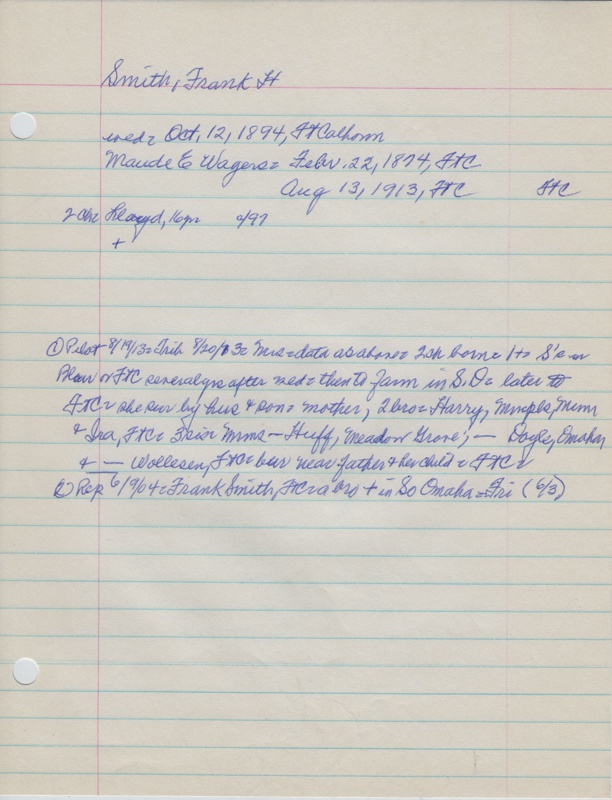 Smith, Frank H
wed = Oct, 12, 1894, Ft Calhoun
Maude E Wagers = Febr. 22, 1874, FtC
Aug 13, 1913, FtC FtC
2 chr Lloyd, 16yr 4/97
+
① Pilot 8/19/13 = Trib 8/20/13 = Mrs = data as above = 2 ch born = 1 + S's in
Blair or FtC several yrs after wed = then to farm in S.D. = later to
FtC = she sur by hus & son = mother, 2 bro = Harry, Mnepls, Minn
& Ira, FtC = 3 sis = Mrms — Huff, Meadow Grove, — Dogle, Omaha,
& — Wollesen, FtC = bur near father & her child = FtC =
② Rep 6/9/04 = Frank Smith, FtC = a bro + in So Omaha = Fri (6/3)